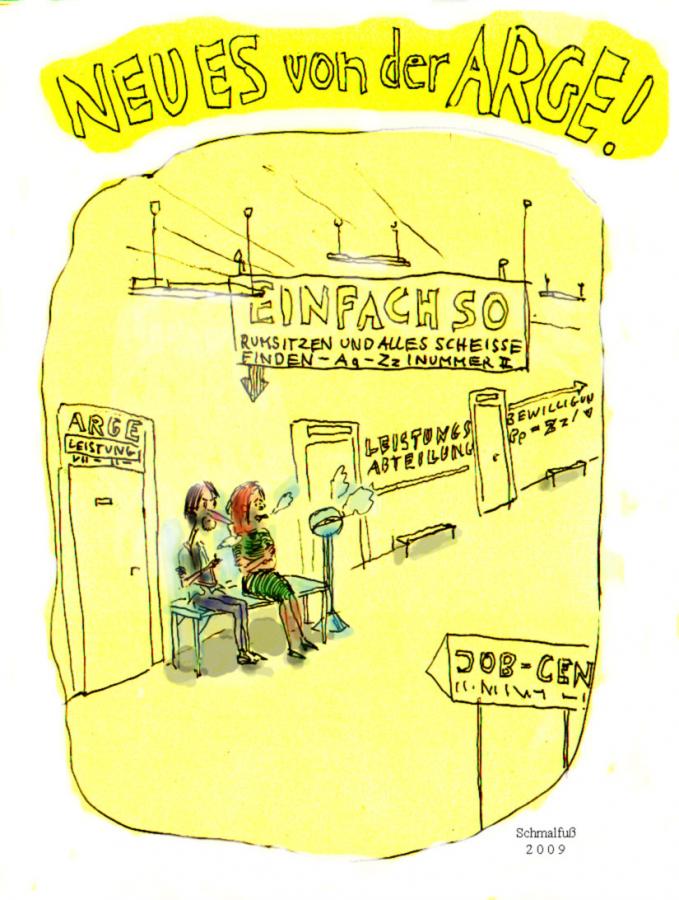 NEUES von der ARGE!
EINFACH SO
RUMSITZEN UND ALLES SCHEISSE
FINDEN - Aq - Zz! NUMMER II
ARGE
LEISTUNG
LEISTUNGS
ABTEILUNG
BEWILLIGUN
JOB-CEN
Schmalfuß
2009